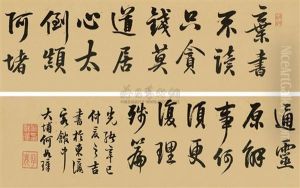 棄書
不讀
只貪
錢莫
道居
心太
倒顛
阿堵
通靈
原解
事何
須更
復理
殘篇
光緒辛巳
之吉
於東瀛
大埔何如璋